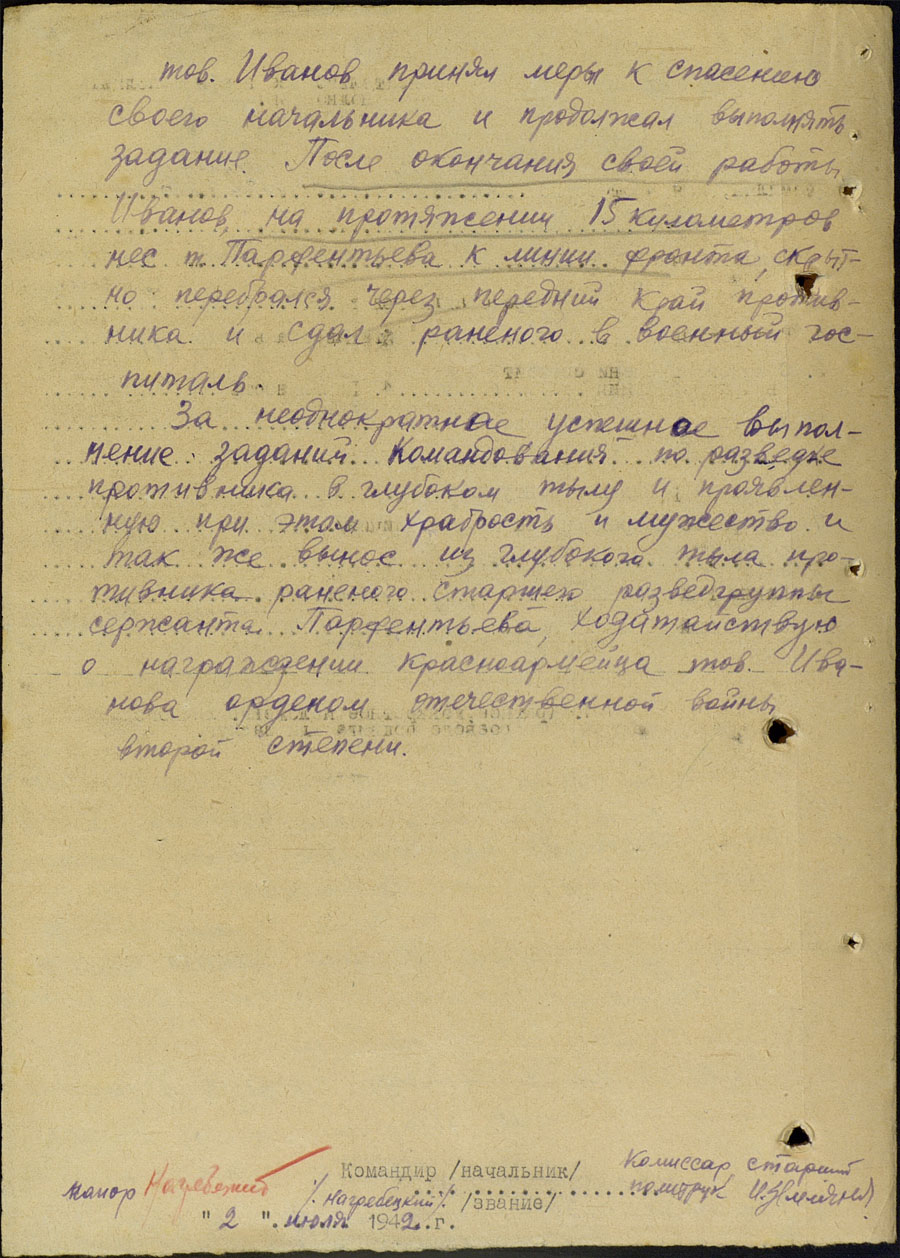 тов. Иванов принял меры к спасению
своего начальника и продолжал выполнять
задание. После окончания своей работы
Иванов, на протяжении 15 километров
нес т. Парфентьева к линии фронта, скрыт-
но перебрался через передний край против-
ника и сдал раненого в военный гос-
питаль.
За неоднократное успешное выпол-
нение заданий Командования по разведке
противника в глубоком тылу и проявлен-
ную при этом храбрость и мужество и
так же вынос из глубокого тыла про-
тивника раненого старшего разведгруппы
сержанта Парфентьева, ходатайствую
о награждении красноармейца тов. Ива-
нова орденом отечественной войны
второй степени.
Командир /начальник/
Комиссар старший
майор
/Нагребецкий/
/звание/
политрук
"2" июля 1942 г.